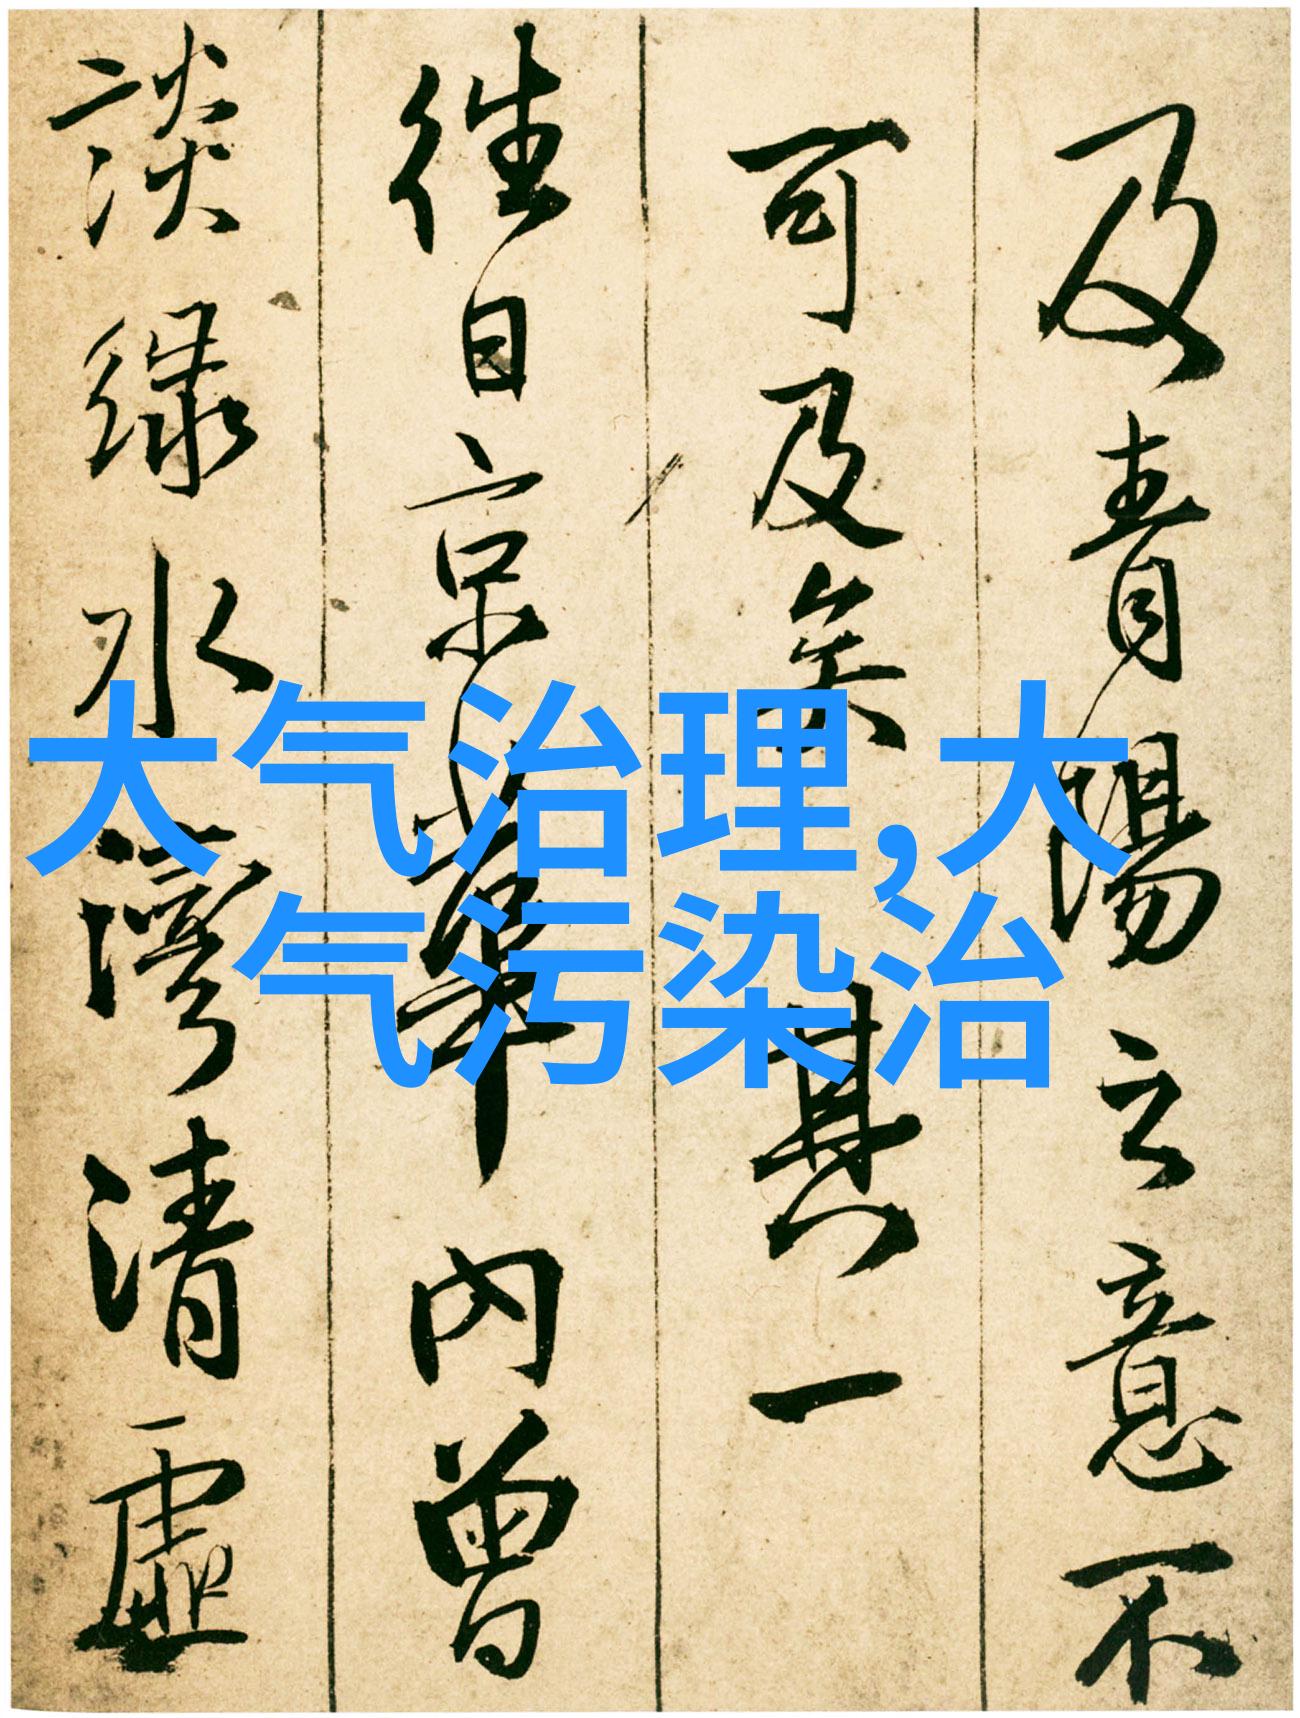 及青陽之意不
可及矣其一
往日京華內曾
談綠水灣清虛
大气治理,大
气污染治